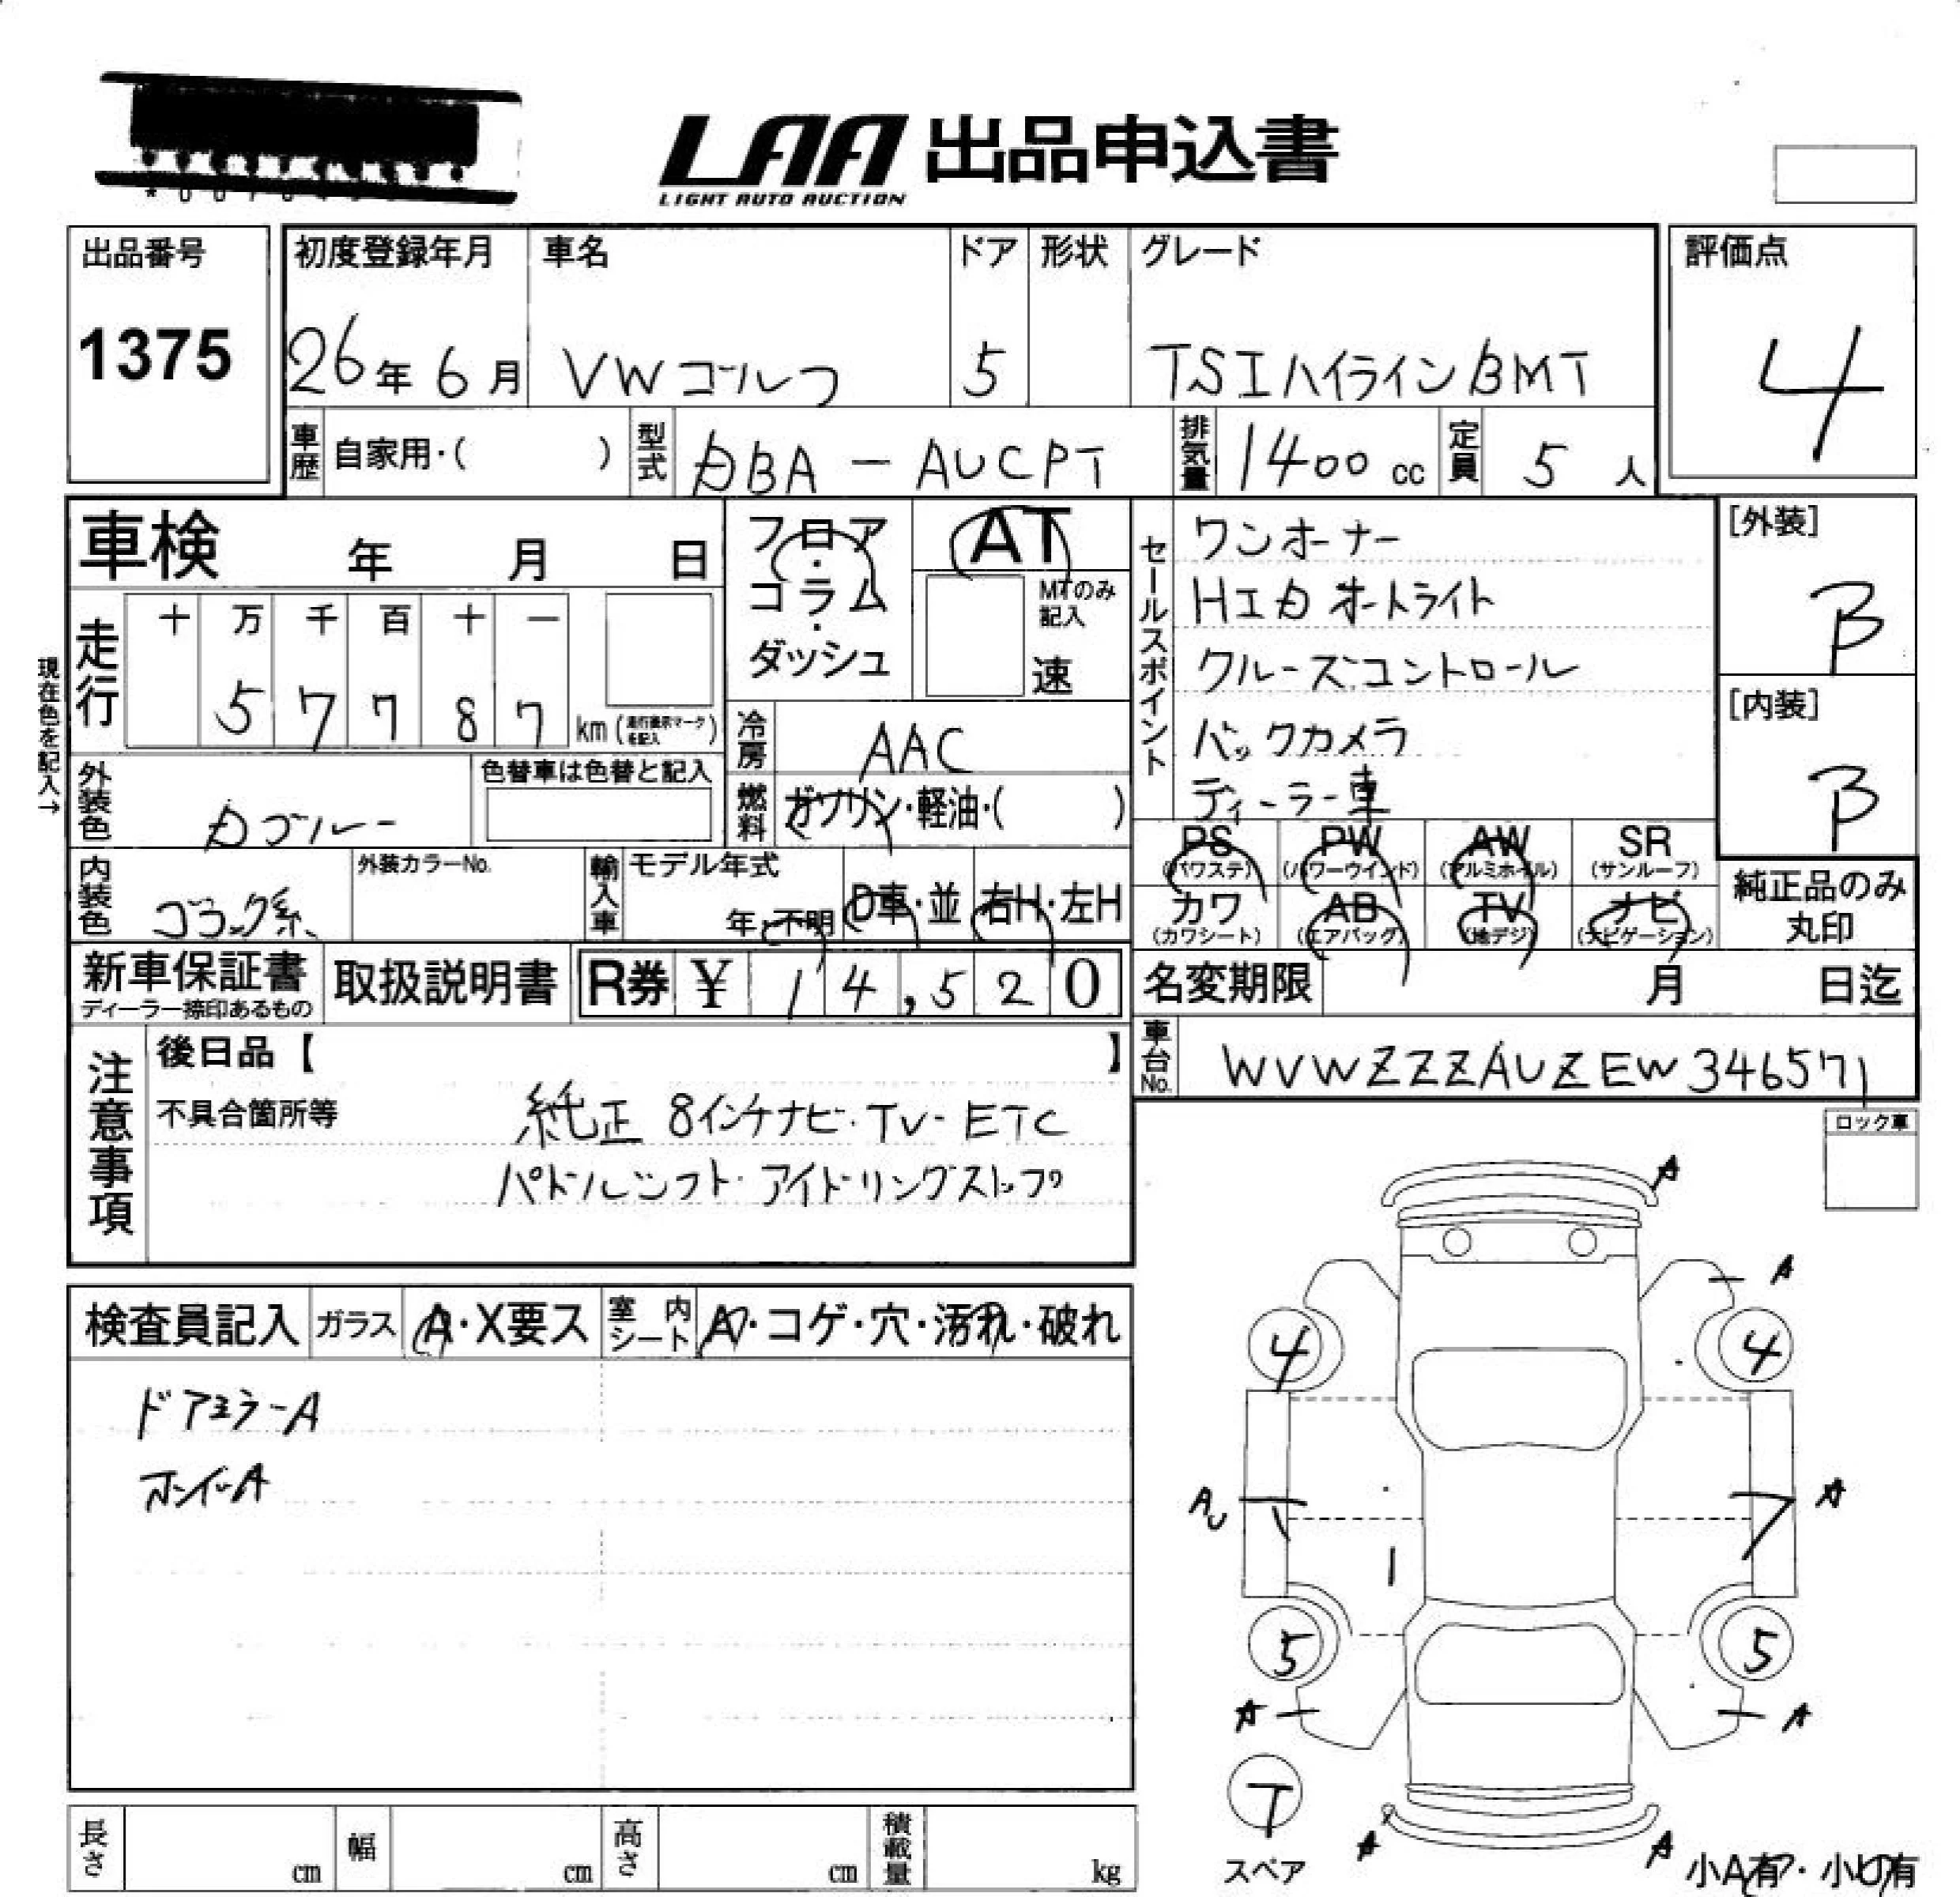 LAA 出品申込書
LIGHT AUTO AUCTION
出品番号
1375
初度登録年月 車名 ドア 形状 グレード
26年 6月 VWゴルフ 5 TSIハイラインBMT
評価点
4
車歴 自家用・( ) 型式 DBA - AUCPT 排気量 1400 cc 定員 5 人
車検 年 月 日
フロア・コラム・ダッシュ
AT
MTのみ記入
速
セールスポイント
ワンオーナー
HID オートライト
クルーズコントロール
バックカメラ
ディーラー車
[外装]
B
[内装]
B
現在色を記入→
走行 十 万 千 百 十 一
5 7 7 8 7 km (走行表示マークを記入)
冷房 AAC
燃料 ガソリン・軽油・( )
外装色 Dブルー 色替車は色替と記入
PS (パワステ) PW (パワーウインド) AW (アルミホイル) SR (サンルーフ)
カワ (カワシート) AB (エアバッグ) TV (地デジ) ナビ (ナビゲーション)
純正品のみ丸印
内装色 ブラック系 外装カラーNo. 輸入車 モデル年式 年・不明 D車・並 右H・左H
新車保証書 ディーラー捺印あるもの 取扱説明書 R券 ¥ 14,520
名変期限 月 日迄
車台No. WVWZZZAUZEW346571
注意事項
後日品【 】
不具合箇所等 純正 8インチナビ・TV・ETC
パドルシフト・アイドリングストップ
ロック車
検査員記入 ガラス A・X要ス 室内シート A・コゲ・穴・汚れ・破れ
ドアミラーA
ホイールA
A
A
4 4
AU A
1
5 5
A A
T
スペア
A A
小A有・小U有
長さ cm 幅 cm 高さ cm 積載量 kg